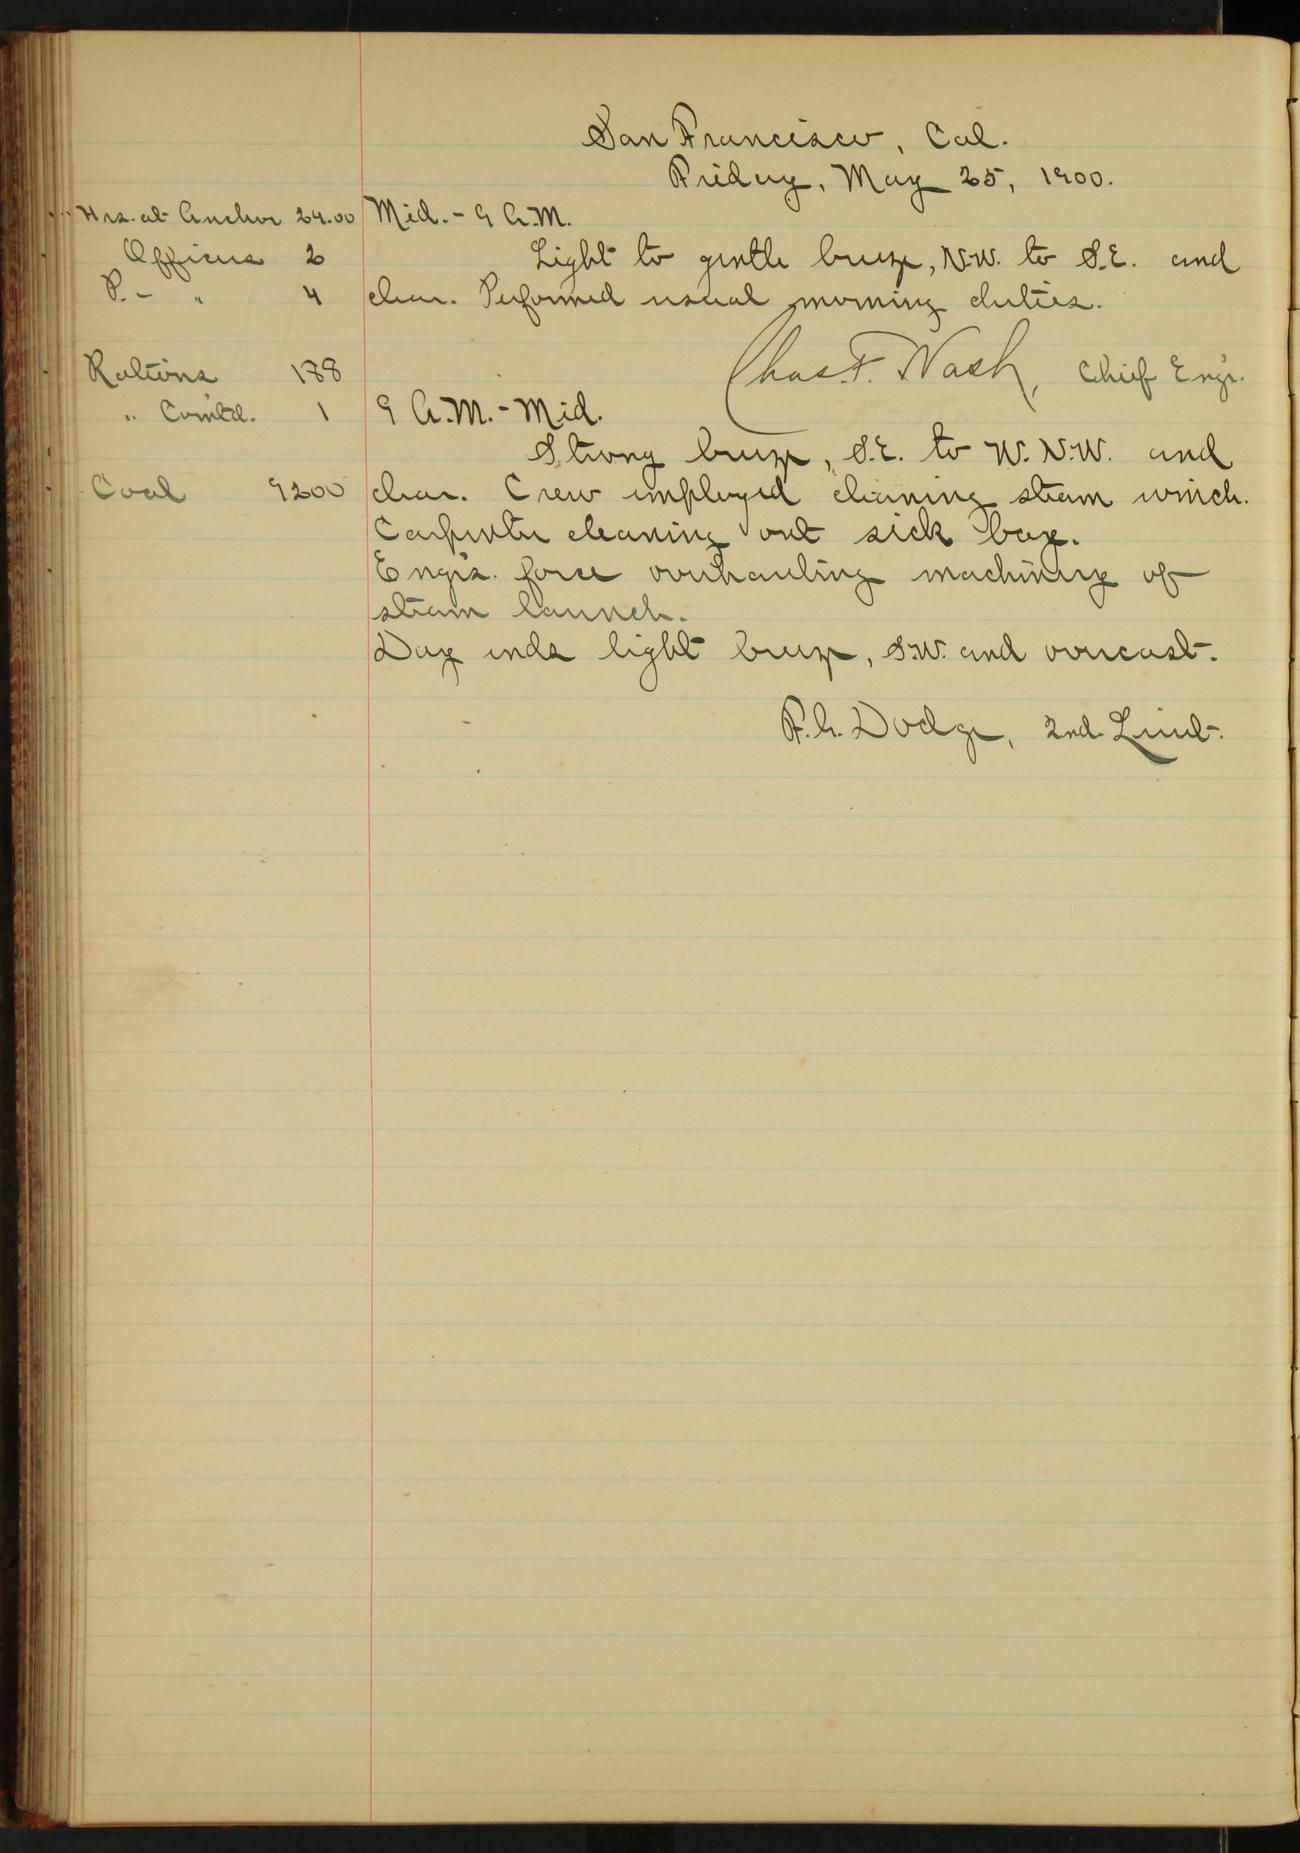 San Francisco, Cal.
Friday, May 25, 1900.
Hrs. at Anchor 24.00
Officers 2
P.- " 4
Rations 188
" Com'td. 1
Coal 9200
Mid. - 9 A.M.
Light to gentle breeze, N.W. to S.E. and
clear. Performed usual morning duties.
Chas. F. Nash, Chief Engr.
9 A.M. - Mid.
Strong breeze, S.E. to W.N.W. and
clear. Crew employed cleaning steam winch.
Carpenter cleaning out sick bay.
Engr's. force overhauling machinery of
steam launch.
Day ends light breeze, S.W. and overcast.
F. G. Dodge, 2nd. Lieut.